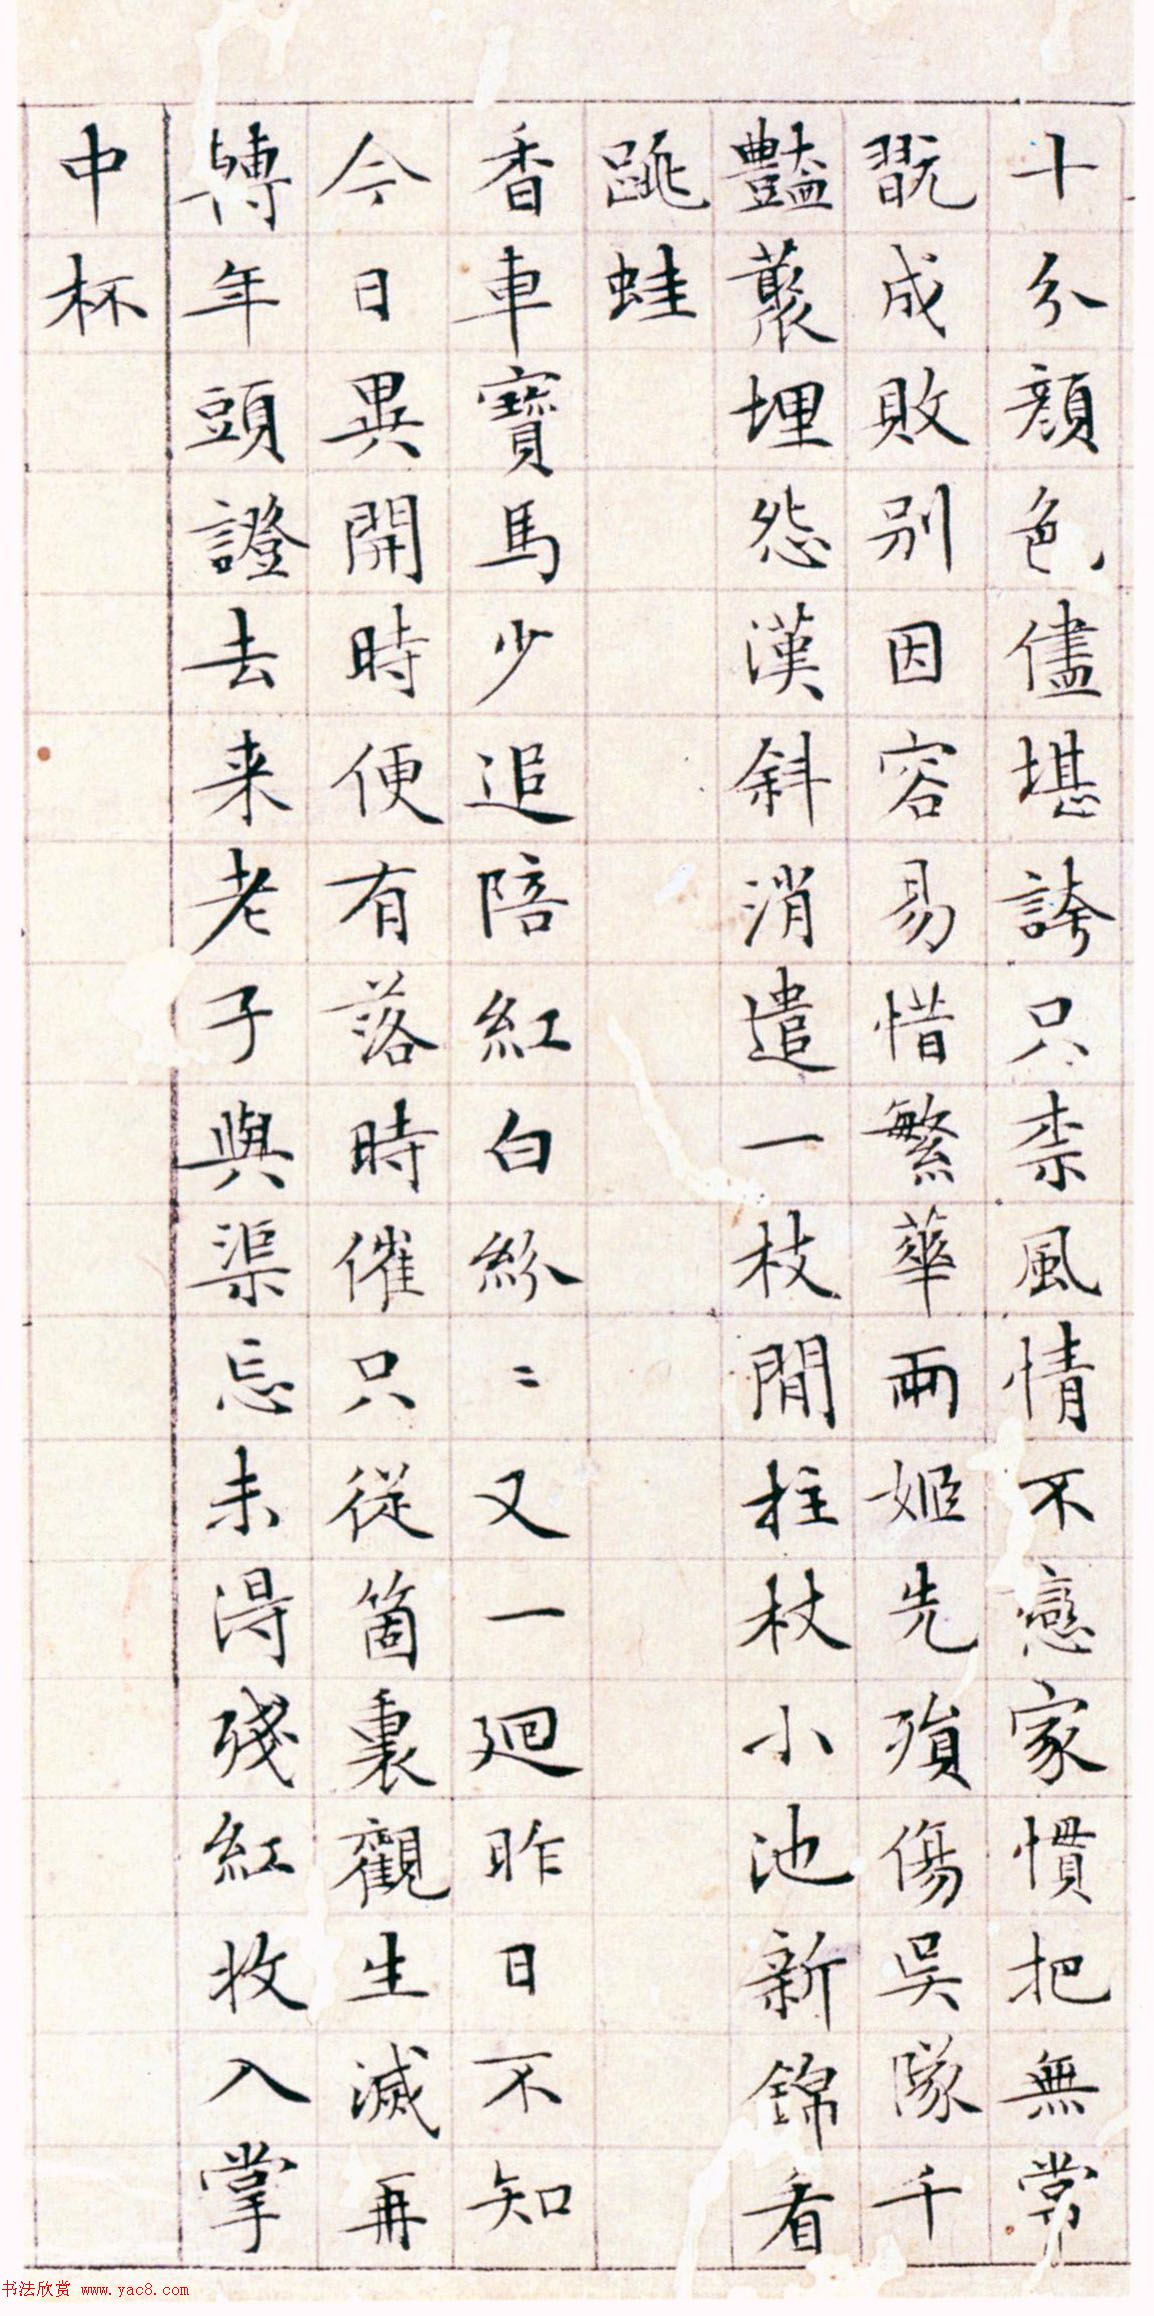 十分顏色儘堪誇只柰風情不戀家慣把無常
翫成敗別因容易惜繁華兩姬先殞傷吳隊千
豔叢埋怨漢斜消遣一枝閒拄杖小池新錦看
跳蛙
香車寶馬少追陪紅白紛〻又一迴昨日不知
今日異開時便有落時催只從箇裏觀生滅再
轉年頭證去来老子與渠忘未得殘紅收入掌
中杯
书法欣赏 www.yac8.com